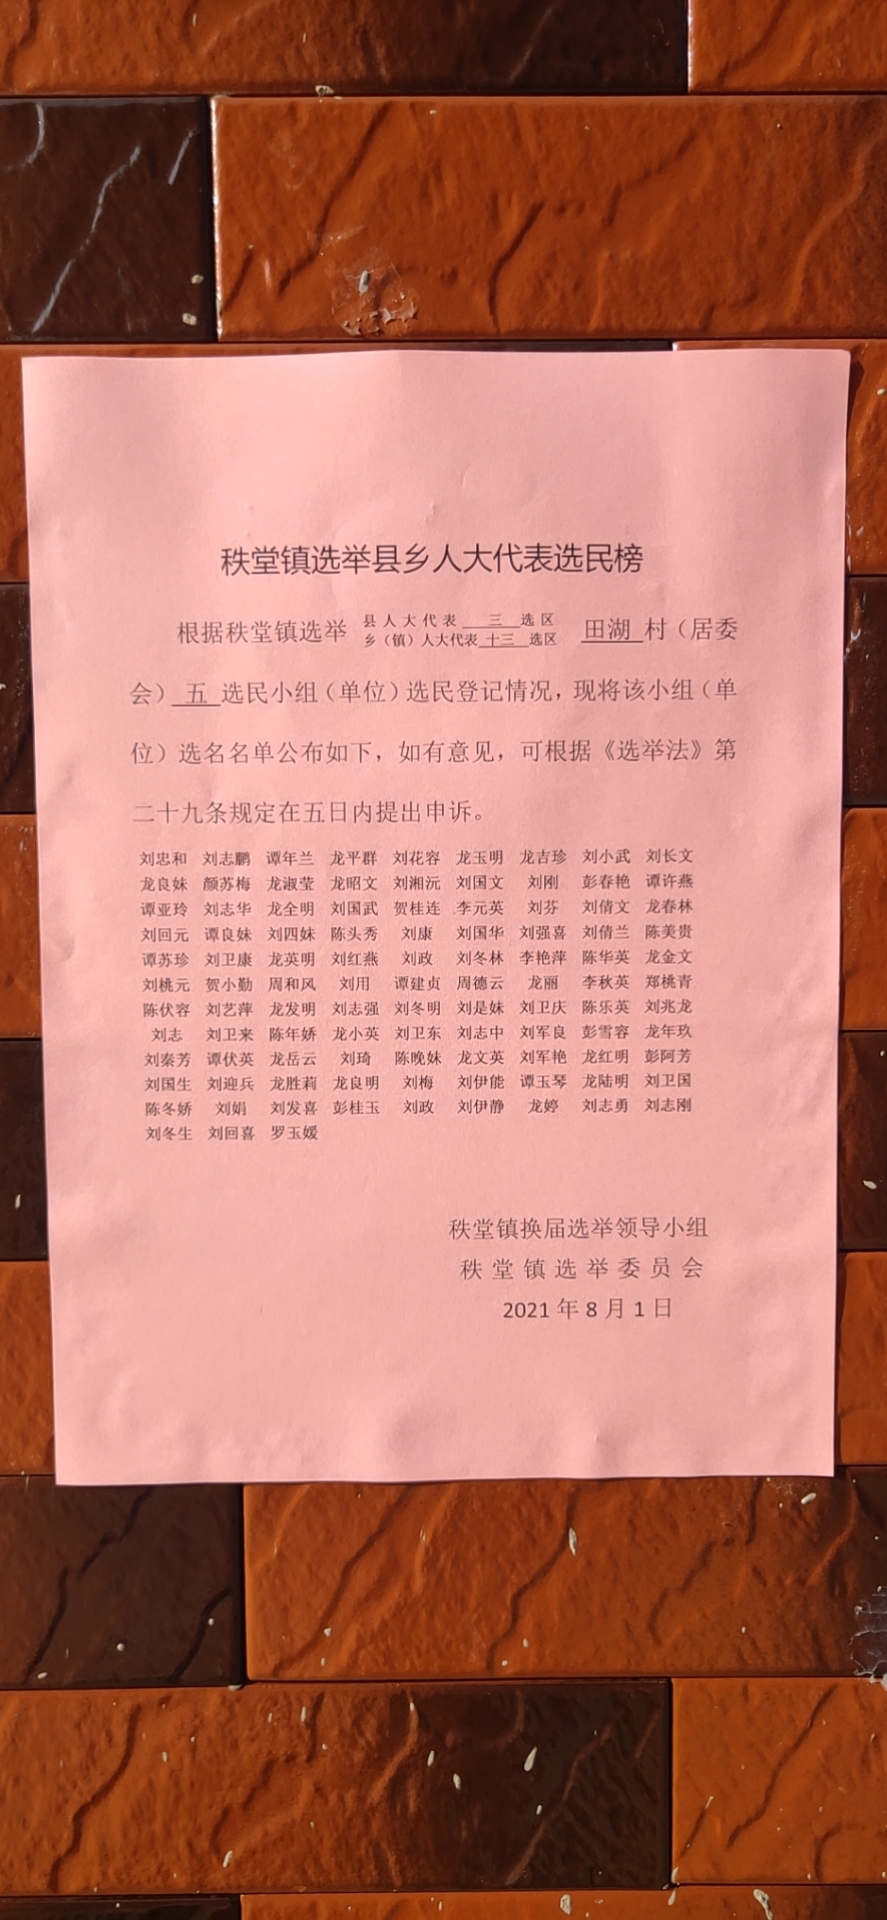 秩堂镇选举县乡人大代表选民榜
根据秩堂镇选举 县人大代表 三 选区 田湖 村（居委
乡（镇）人大代表 十三 选区
会） 五 选民小组（单位）选民登记情况，现将该小组（单
位）选名名单公布如下，如有意见，可根据《选举法》第
二十九条规定在五日内提出申诉。
刘忠和 刘志鹏 谭年兰 龙平群 刘花容 龙玉明 龙吉珍 刘小武 刘长文
龙良妹 颜苏梅 龙淑莹 龙昭文 刘湘沅 刘国文 刘刚 彭春艳 谭许燕
谭亚玲 刘志华 龙全明 刘国武 贺桂连 李元英 刘芬 刘倩文 龙春林
刘回元 谭良妹 刘四妹 陈头秀 刘康 刘国华 刘强喜 刘倩兰 陈美贵
谭苏珍 刘卫康 龙英明 刘红燕 刘政 刘冬林 李艳萍 陈华英 龙金文
刘桃元 贺小勤 周和风 刘用 谭建贞 周德云 龙丽 李秋英 郑桃青
陈伏容 刘艺萍 龙发明 刘志强 刘冬明 刘是妹 刘卫庆 陈乐英 刘兆龙
刘志 刘卫来 陈年娇 龙小英 刘卫东 刘志中 刘军良 彭雪容 龙年玖
刘秦芳 谭伏英 龙岳云 刘琦 陈晚妹 龙文英 刘军艳 龙红明 彭阿芳
刘国生 刘迎兵 龙胜莉 龙良明 刘梅 刘伊能 谭玉琴 龙陆明 刘卫国
陈冬娇 刘娟 刘发喜 彭桂玉 刘政 刘伊静 龙婷 刘志勇 刘志刚
刘冬生 刘回喜 罗玉媛
秩堂镇换届选举领导小组
秩堂镇选举委员会
2021年8月1日